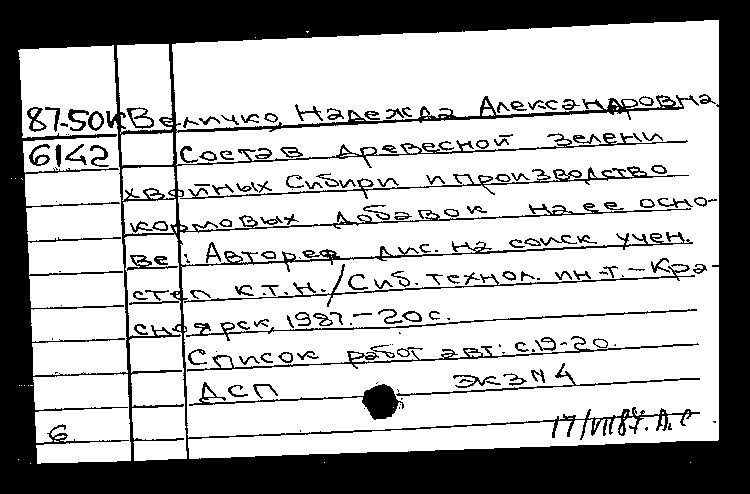 87-50К Величко, Надежда Александровна
6142 Состав древесной зелени
хвойных Сибири и производство
кормовых добавок на ее осно-
ве: Автореф дис. на соиск учен.
степ к.т.н./Сиб. технол. ин-т.-Кра-
сноярск, 1987.-20с.
Список работ авт: с.19-20.
ДСП экз N 4
6 17/VII87. А.С